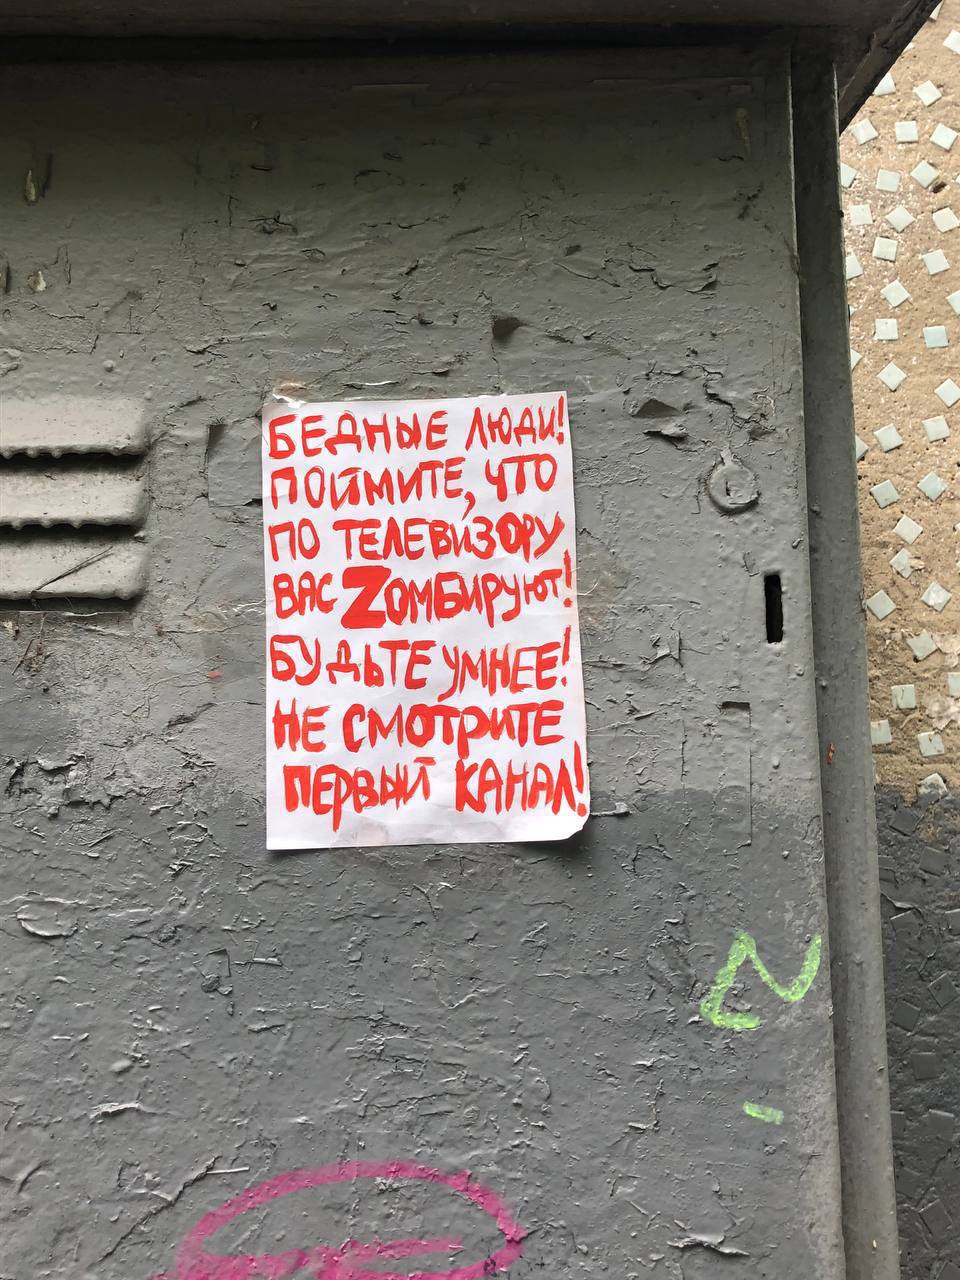 БЕДНЫЕ ЛЮДИ!
ПОЙМИТЕ, ЧТО
ПО ТЕЛЕВИЗОРУ
ВАС ZОМБИРУЮТ!
БУДЬТЕ УМНЕЕ!
НЕ СМОТРИТЕ
ПЕРВЫЙ КАНАЛ!